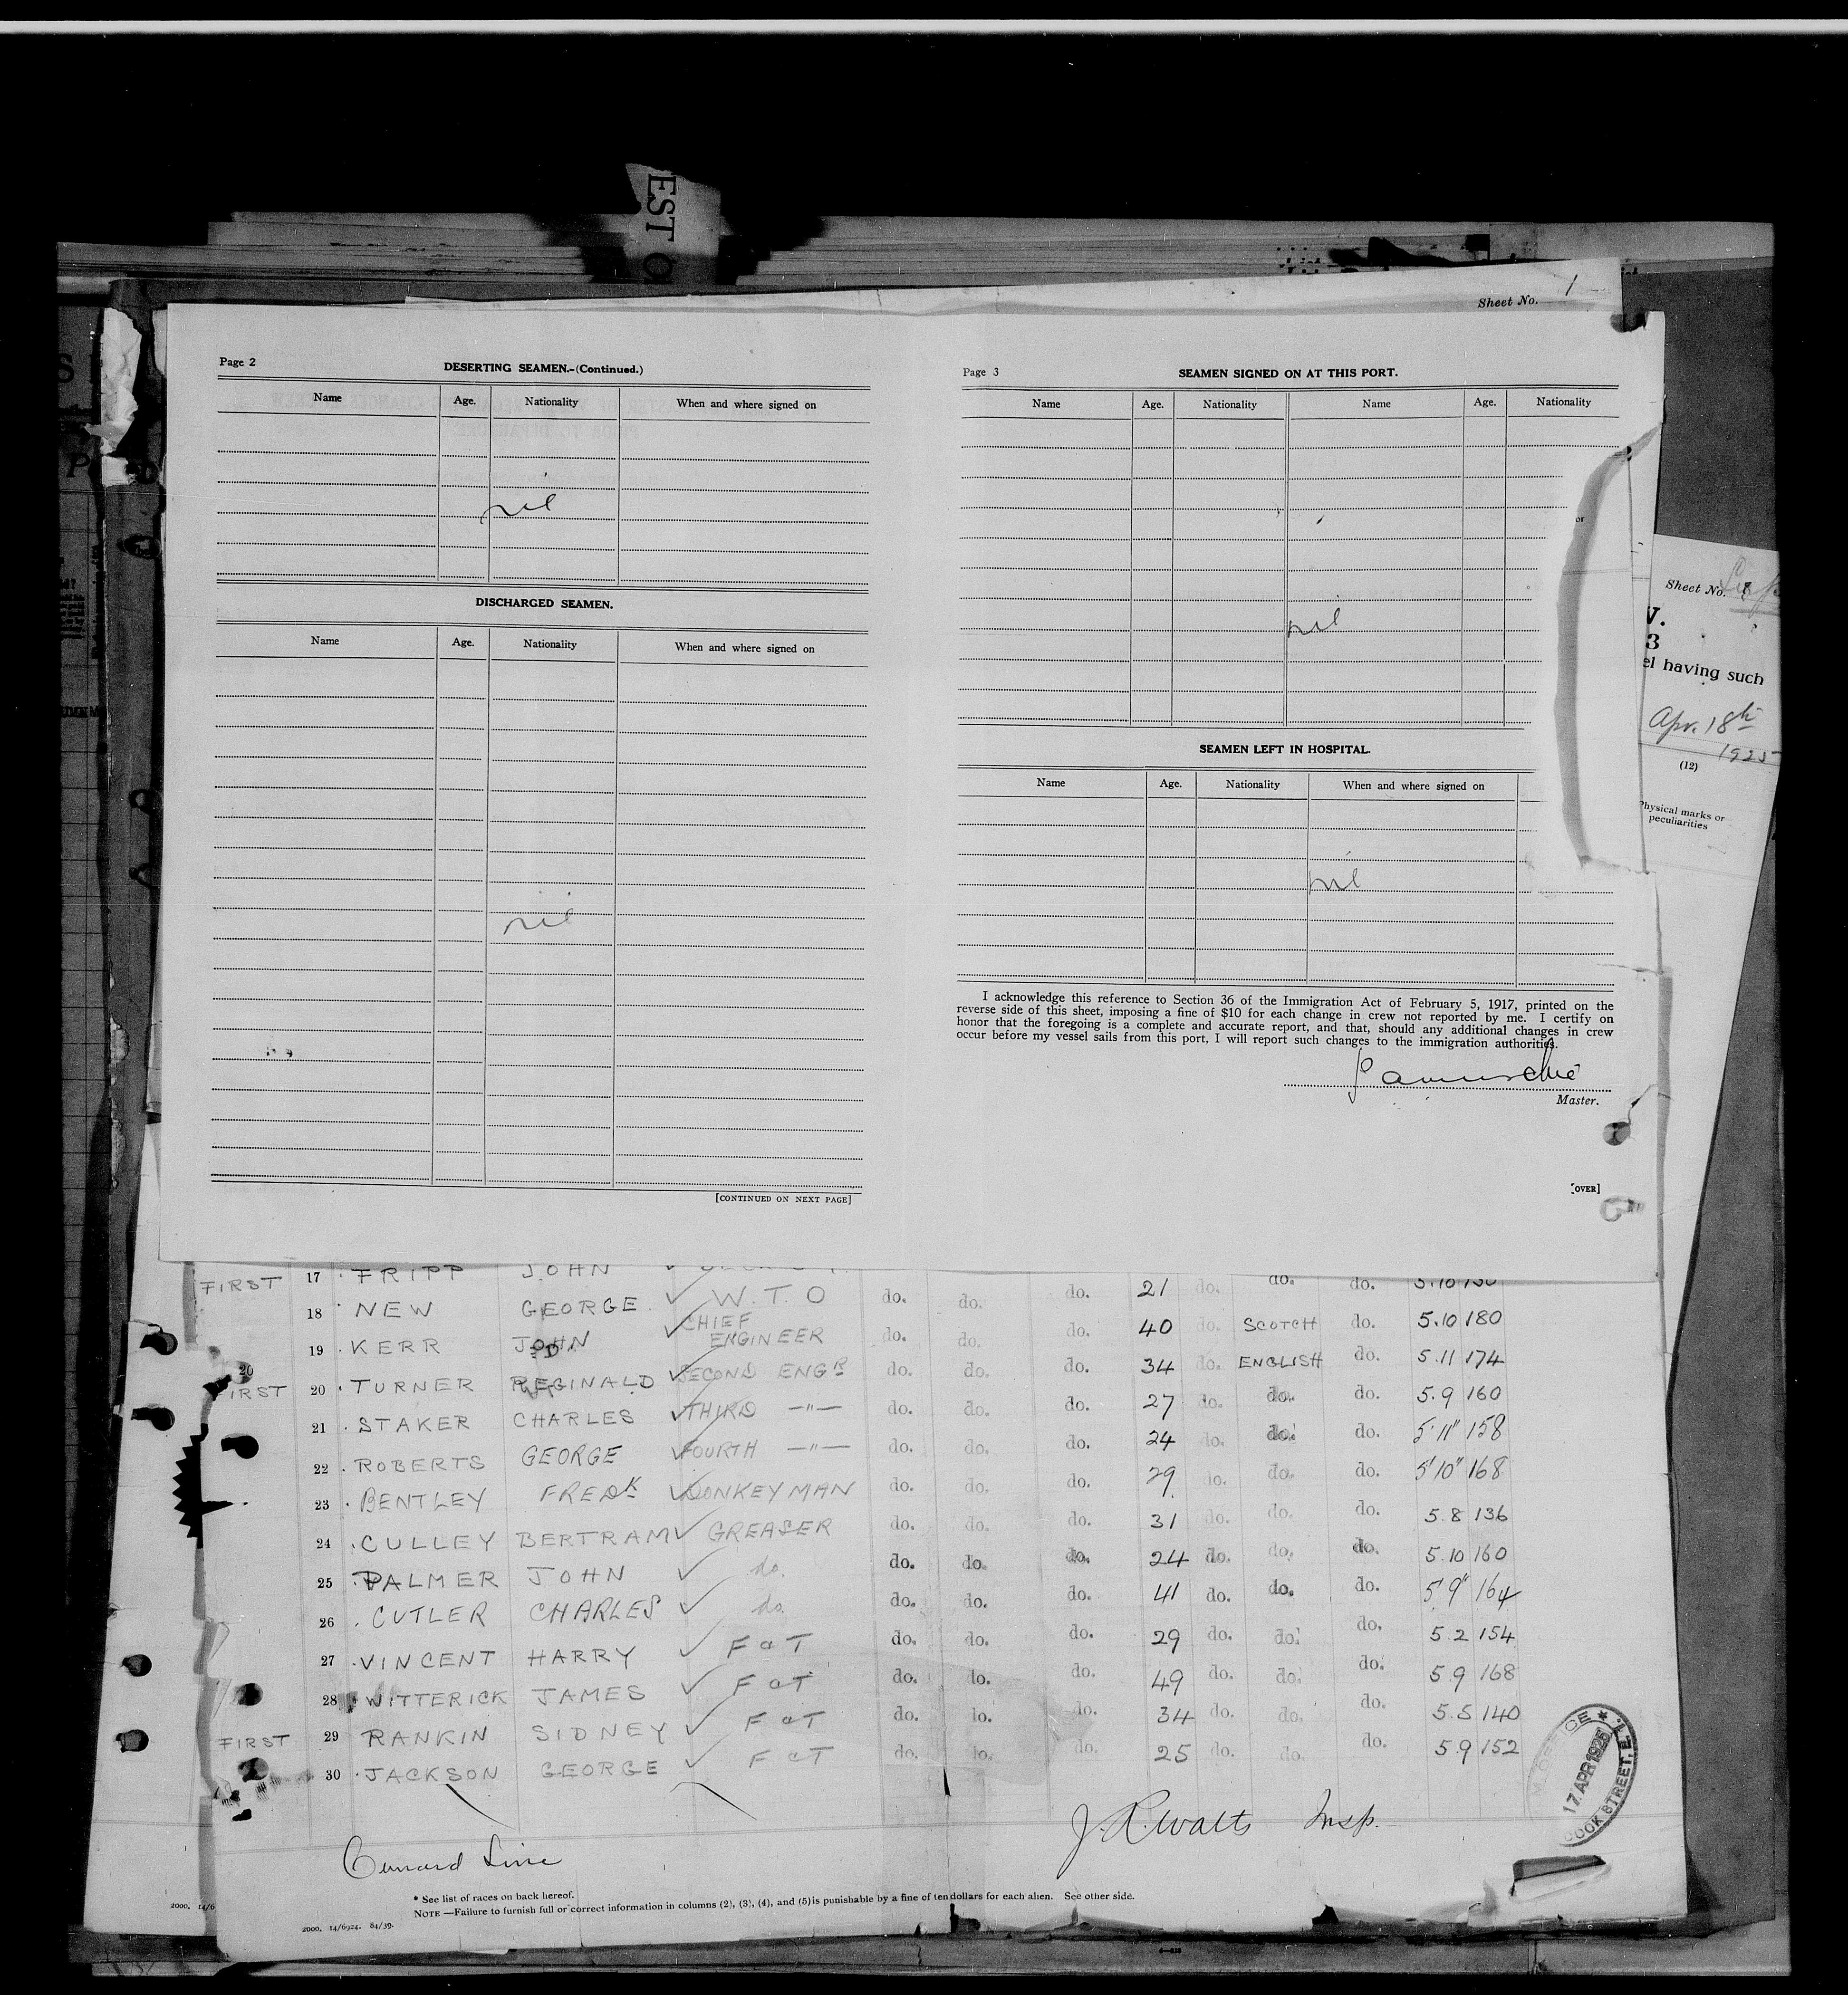 EST O
Sheet No. 1
Page 2
DESERTING SEAMEN.-(Continued.)
Name Age. Nationality When and where signed on
nil
DISCHARGED SEAMEN.
Name Age. Nationality When and where signed on
nil
[CONTINUED ON NEXT PAGE]
Page 3
SEAMEN SIGNED ON AT THIS PORT.
Name Age. Nationality Name Age. Nationality
nil
SEAMEN LEFT IN HOSPITAL.
Name Age. Nationality When and where signed on
nil
I acknowledge this reference to Section 36 of the Immigration Act of February 5, 1917, printed on the
reverse side of this sheet, imposing a fine of $10 for each change in crew not reported by me. I certify on
honor that the foregoing is a complete and accurate report, and that, should any additional changes in crew
occur before my vessel sails from this port, I will report such changes to the immigration authorities.
Master.
[OVER]
or
Sheet No. 8
V.
3
el having such
Apr. 18th
1925
(12)
Physical marks or
peculiarities
FIRST 17 FRIPP JOHN do. do.
18 NEW GEORGE W.T.O do. do. do. 21 do. do. do. 5.10 150
19 KERR JOHN CHIEF ENGINEER do. do. do. 40 do. SCOTCH do. 5.10 180
FIRST 20 TURNER REGINALD SECOND ENGR do. do. do. 34 do. ENGLISH do. 5.11 174
21 STAKER CHARLES THIRD —"— do. do. do. 27 do. do. do. 5.9 160
22 ROBERTS GEORGE FOURTH —"— do. do. do. 24 do. do. do. 5'11" 158
23 BENTLEY FREDK DONKEYMAN do. do. do. 29 do. do. do. 5'10" 168
24 CULLEY BERTRAM GREASER do. do. do. 31 do. do. do. 5.8 136
25 PALMER JOHN do. do. do. do. 24 do. do. do. 5.10 160
26 CUTLER CHARLES do. do. do. do. 41 do. do. do. 5'9" 164
27 VINCENT HARRY F&T do. do. do. 29 do. do. do. 5.2 154
28 WITTERICK JAMES F&T do. do. do. 49 do. do. do. 5.9 168
FIRST 29 RANKIN SIDNEY F&T do. do. do. 34 do. do. do. 5.5 140
30 JACKSON GEORGE F&T do. do. do. 25 do. do. do. 5.9 152
17 APR 1925
COOK STREET, E.
J.R. Watts Insp.
Cunard Line
* See list of races on back hereof.
NOTE —Failure to furnish full or correct information in columns (2), (3), (4), and (5) is punishable by a fine of ten dollars for each alien. See other side.
2000. 14/6
2000. 14/6924. 84/39.